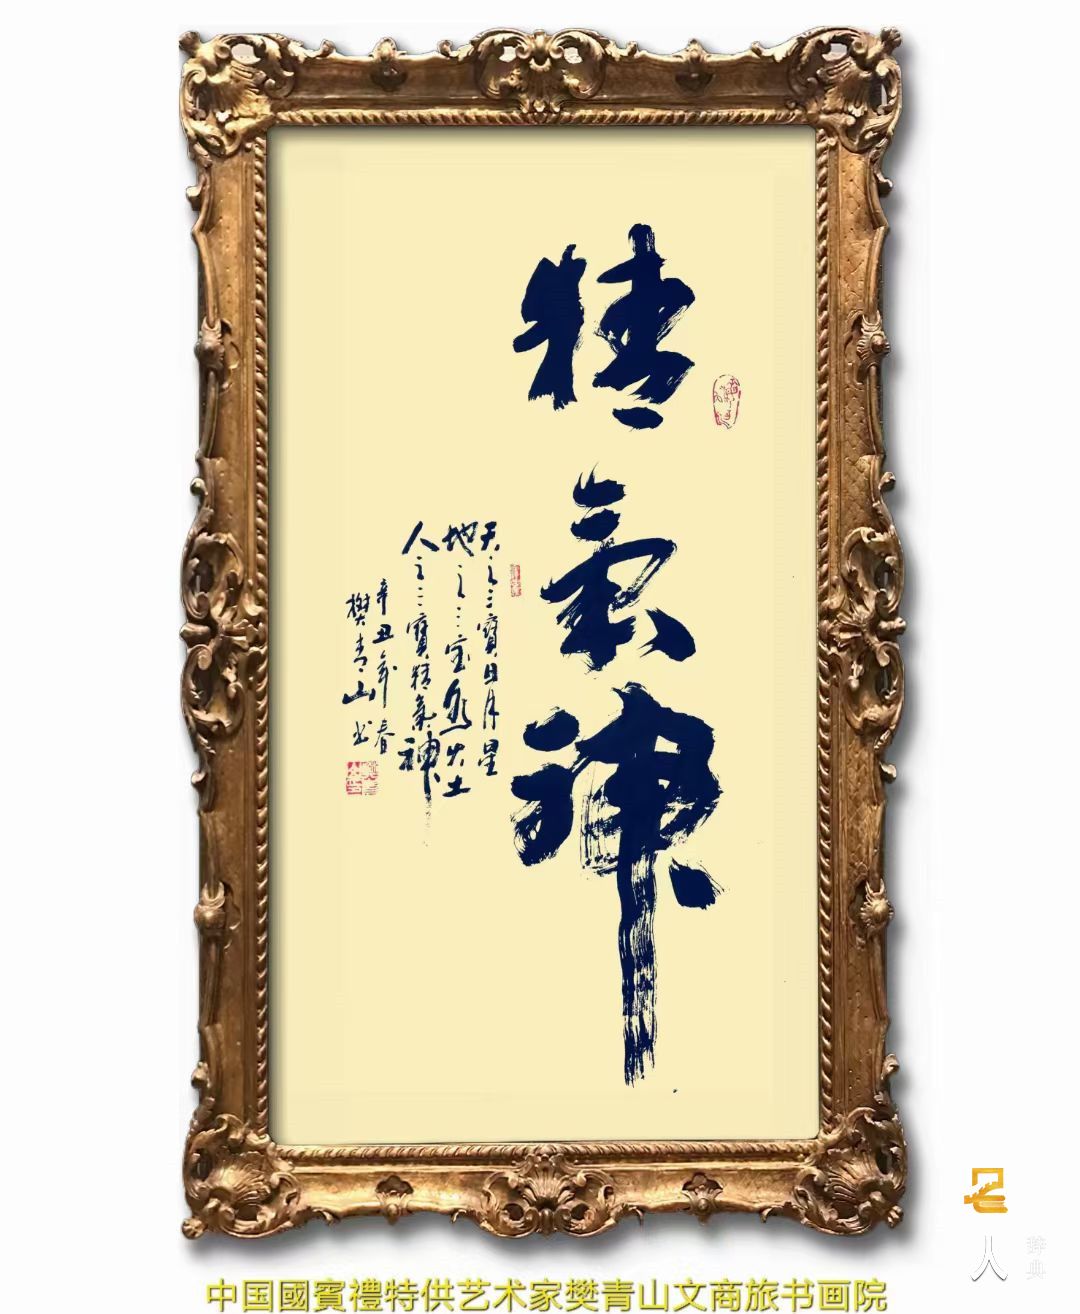 精氣神
天之三寶日月星
地之三宝水火土
人之三寶精氣神
辛丑年春
樊青山书
中国國賓禮特供艺术家樊青山文商旅书画院
名
人
辞典